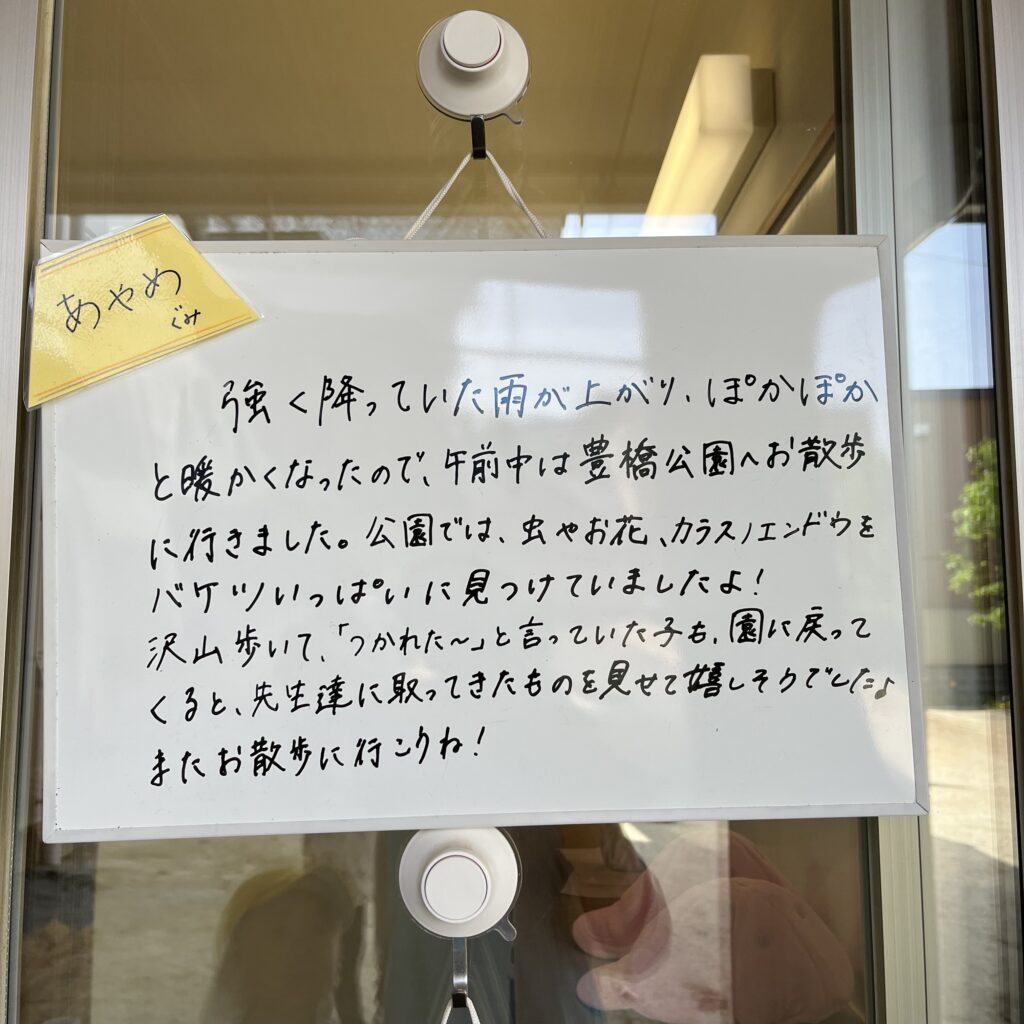 あやめ
ぐみ
強く降っていた雨が上がり、ぽかぽか
と暖かくなったので、午前中は豊橋公園へお散歩
に行きました。公園では、虫やお花、カラスノエンドウを
バケツいっぱいに見つけていましたよ!
沢山歩いて、「つかれた～」と言っていた子も、園に戻って
くると、先生達に取ってきたものを見せて嬉しそうでした♪
またお散歩に行こうね!